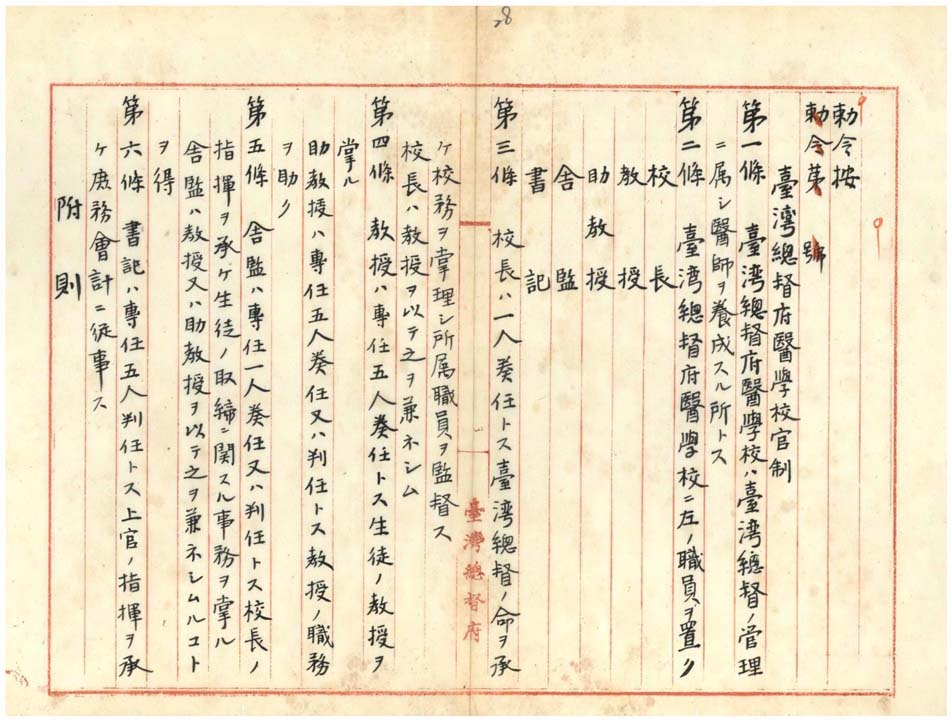 28
勅令按
勅令第　號
臺灣總督府醫學校官制
第一條　臺灣總督府醫學校ハ臺灣總督ノ管理
ニ属シ醫師ヲ養成スル所トス
第二條　臺灣總督府醫學校ニ左ノ職員ヲ置ク
校長
教授
助教授
舎監
書記
第三條　校長ハ一人奏任トス臺灣總督ノ命ヲ承
ケ校務ヲ掌理シ所属職員ヲ監督ス
校長ハ教授ヲ以テ之ヲ兼ネシム
第四條　教授ハ專任五人奏任トス生徒ノ教授ヲ
掌ル
助教授ハ專任五人奏任又ハ判任トス教授ノ職務
ヲ助ク
第五條　舎監ハ專任一人奏任又ハ判任トス校長ノ
指揮ヲ承ケ生徒ノ取締ニ関スル事務ヲ掌ル
舎監ハ教授又ハ助教授ヲ以テ之ヲ兼ネシムルコト
ヲ得
第六條　書記ハ專任五人判任トス上官ノ指揮ヲ承
ケ庶務會計ニ従事ス
附則
臺灣總督府